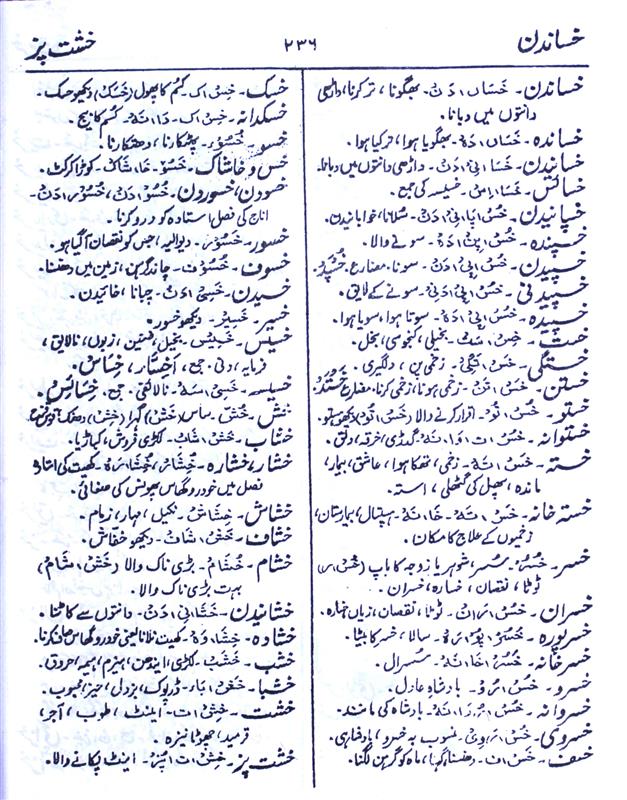 خساندن ۲۳۶ خشت پز
خساندن۔ خَسَاں ادَنْ۔ بھگونا، تر کرنا، داڑھی
دانتوں میں دبانا۔
خساندہ۔ خَسَاں ادَہْ۔ بھگویا ہوا، تر کیا ہوا۔
خسانیدن۔ خَسَا اِنیْ ادَنْ۔ داڑھی دانتوں میں دبانا۔
خسائس۔ خَسَا اِسْ۔ خسیسہ کی جمع۔
خسپانیدن۔ خُسْ اپَا اِنیْ ادَنْ۔ سُلانا، خوابانیدن۔
خسپندہ۔ خُسْ اپِنْ ادَہْ۔ سونے والا۔
خسپیدن۔ خُسْ اپِیْ ادَنْ۔ سونا۔ مضارع۔ خُسْپَدْ۔
خسپیدنی۔ خُسْ اپِیْ ادَنِیْ۔ سونے کے لایق۔
خسپیدہ۔ خُسْ اپِیْ ادَہْ۔ سوتا ہوا، سویا ہوا۔
خست۔ خِسْ اسَتْ۔ بخیلی، کنجوسی، بخل۔
خستگی۔ خَسْ اتَگِیْ۔ زخمی پن، دلگیری۔
خستن۔ خَسْ اتَنْ۔ زخمی ہونا، زخمی کرنا۔ مضارع خَسْتَدْ۔
خستو۔ خَسْ اتُوْ۔ اقرار کرنے والا (خُسْ اتُوْ) دیکھو ہستو۔
خستوانہ۔ خَسْ ات اوَا انَہْ۔ گدڑی، خرقہ، دلق۔
خستہ۔ خَسْ اتَہْ۔ زخمی، تھکا ہوا، عاشق، بیمار،
ماندہ، پھل کی گٹھلی، استہ۔
خستہ خانہ۔ خَسْ اتَہْ۔ خَا انَہْ۔ ہسپتال، بیمارستان،
زخمیوں کے علاج کا مکان۔
خسر۔ خُسُرْ۔ سسر، شوہر یا زوجہ کا باپ (خُسْ ارْ)
ٹوٹا، نقصان، خسارہ، خسران۔
خسران۔ خُسْ ارَانْ۔ ٹوٹا، نقصان، زیاں، خسارہ۔
خسرپورہ۔ خُسُرْ اپُوْ ارَہْ۔ سالا، خسر کا بیٹا۔
خسرخانہ۔ خُسُرْ اخَا انَہْ۔ سسرال۔
خسرو۔ خُسْ ارَوْ۔ بادشاہِ عادل۔
خسروانہ۔ خُسْ ارَوَا انَہْ۔ بادشاہ کی مانند۔
خسروی۔ خُسْ ارَوِیْ۔ منسوب بہ خسرو، بادشاہی۔
خسف۔ خَسْ افْ۔ دھنسنا، گہنا، ماہ کو گرہن لگنا۔
خسک۔ خَسْ اکْ۔ کُسُم کا پھول (خَسَکْ) دیکھو حسک۔
خسکدانہ۔ خَسْ اکْ۔ دَا انَہْ۔ کسم کا بیج۔
خسو۔ خُسُوْ۔ پھٹکارنا، دھتکارنا۔
خس و خاشاک۔ خَسُوْ۔ خَا اشَاکْ۔ کوڑا کرکٹ۔
خسودن، خسوردن۔ خُسُوْ ادَنْ، خُسُوْرْ ادَنْ۔
اناج کی فصل استادہ کو درو کرنا۔
خسور۔ خَسُوْرْ۔ دیوالیہ، جس کو نقصان آگیا ہو۔
خسوف۔ خُسُوْفْ۔ چاند گرہن، زمین میں دھنسنا۔
خسیدن۔ خَسِیْ ادَنْ۔ چبانا، خائیدن۔
خسیر۔ خَسِیْرْ۔ دیکھو خسور۔
خسیس۔ خَسِیْسْ۔ بخیل، زبوں، نالایق،
فرومایہ، دنی۔ جمع۔ خِسَاسْ۔
خسیسہ۔ خَسِیْ اسَہْ۔ جمع۔ خَسَائِسْ۔
خش۔ خُشْ۔ ساس (خَشْ) گہرا (خِشْ)
خشاب۔ خَشْ اشَابْ۔ لکڑی فروش، کباڑیا۔
خشار، خشارہ۔ خُشَارْ، خُشَا ارَہْ۔ کھیت کی استادہ
فصل میں خودرو گھاس پھونس کی صفائی۔
خشاش۔ خِشَاشْ۔ نکیل، مہار، زمام۔
خشاف۔ خَشْ اشَافْ۔ دیکھو خفاش۔
خشام۔ خُشَامْ۔ بڑی ناک والا (خَشْ اشَامْ)
بہت بڑی ناک والا۔
خشانیدن۔ خَشَا اِنیْ ادَنْ۔ دانتوں سے کاٹنا۔
خشادہ۔ خُشَا ادَہْ۔ کھیت نلانا یعنی خودرو گھاس صاف کرنا۔
خشب۔ خَشَبْ۔ لکڑی، ایندھن، ہیزم، ہیمہ،
خشبا۔ ڈرپوک، بزدل،
خشت۔ خِشْ اتْ۔ اینٹ، طوب، آجر،
قرمید، چھوٹا نیزہ۔
خشت پز۔ خِشْ ات اپَزْ۔ اینٹ پکانے والا۔